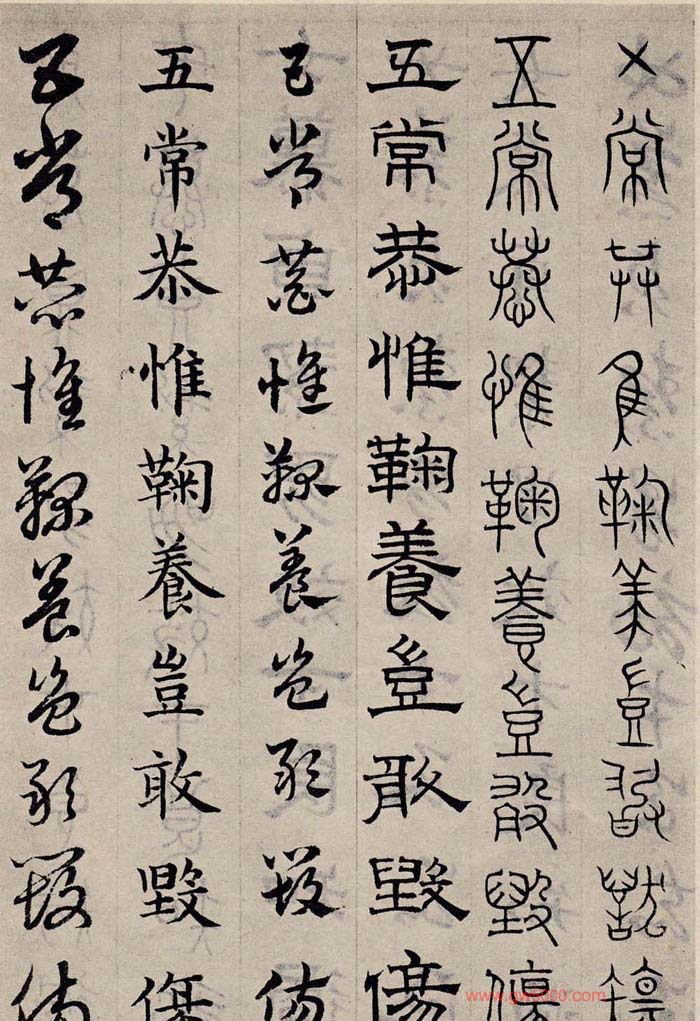 五常恭惟鞠養豈敢毀傷
五常恭惟鞠養豈敢毀傷
五常恭惟鞠養豈敢毀傷
五常恭惟鞠養豈敢毀傷
五常恭惟鞠養豈敢毀傷
五常恭惟鞠養豈敢毀傷